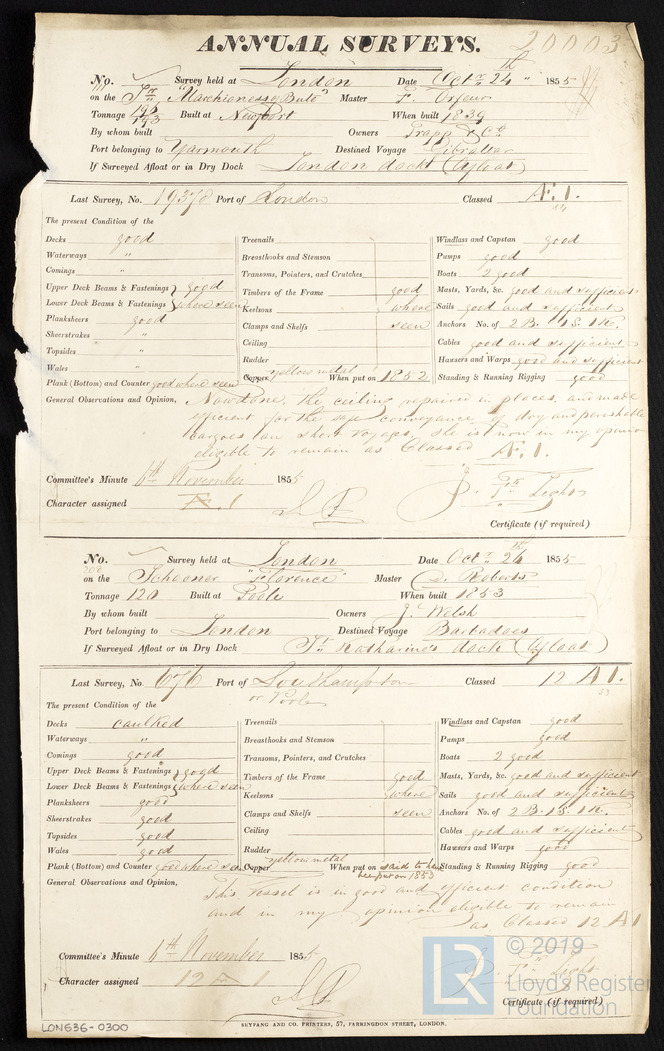 ANNUAL SURVEYS.
20003
No. Survey held at London Date Octr 24th 1855
on the "Marchioness of Bute" Master F. Orfeur
Tonnage 198 193 Built at Newport When built 1839
By whom built Owners Trapp & Co
Port belonging to Yarmouth Destined Voyage Gibraltar
If Surveyed Afloat or in Dry Dock London docks (Afloat)
Last Survey, No. 19378 Port of London Classed Æ.1.
The present Condition of the
Decks good
Waterways "
Comings "
Upper Deck Beams & Fastenings good
Lower Deck Beams & Fastenings where seen
Planksheers good
Sheerstrakes "
Topsides "
Wales "
Plank (Bottom) and Counter good where seen
Treenails
Breasthooks and Stemson
Transoms, Pointers, and Crutches
Timbers of the Frame good
Keelsons where
Clamps and Shelfs seen
Ceiling
Rudder
Copper yellow metal When put on 1852
Windlass and Capstan good
Pumps good
Boats 2 good
Masts, Yards, &c. good and sufficient
Sails good and sufficient
Anchors No. of 2 B. 1 S. 1 K.
Cables good and sufficient
Hawsers and Warps good and sufficient
Standing & Running Rigging good
General Observations and Opinion, Now done, the ceiling repaired in places, and made
efficient for the safe conveyance of dry and perishable
cargoes on short voyages. She is now in my opinion
eligible to remain as Classed Æ.1.
Committee's Minute 6th November 1855
Character assigned Æ.1
Certificate (if required)
No. Survey held at London Date Octr 24th 1855
on the Schooner "Florence" Master D. Roberts
Tonnage 120 Built at Poole When built 1853
By whom built Owners J. Welsh
Port belonging to London Destined Voyage Barbadoes
If Surveyed Afloat or in Dry Dock St Katharine's dock (Afloat)
Last Survey, No. 676 Port of Southampton Classed 12 A1.
53
or Poole
The present Condition of the
Decks caulked
Waterways "
Comings good
Upper Deck Beams & Fastenings good
Lower Deck Beams & Fastenings where seen
Planksheers good
Sheerstrakes good
Topsides good
Wales good
Plank (Bottom) and Counter good where seen
Treenails
Breasthooks and Stemson
Transoms, Pointers, and Crutches
Timbers of the Frame good
Keelsons where
Clamps and Shelfs seen
Ceiling
Rudder
Copper yellow metal When put on said to have
been put on 1853
Windlass and Capstan good
Pumps good
Boats 2 good
Masts, Yards, &c. good and sufficient
Sails good and sufficient
Anchors No. of 2 B. 1 S. 1 K.
Cables good and sufficient
Hawsers and Warps good
Standing & Running Rigging good
General Observations and Opinion, This Vessel is in good and efficient condition
and in my opinion eligible to remain
as Classed 12 A1
Committee's Minute 6th November 1855
Character assigned 12 A 1
Certificate (if required)
SEYFANG AND CO. PRINTERS, 57, FARRINGDON STREET, LONDON.
LON636-0300
LR © 2019
Lloyd's Register
Foundation